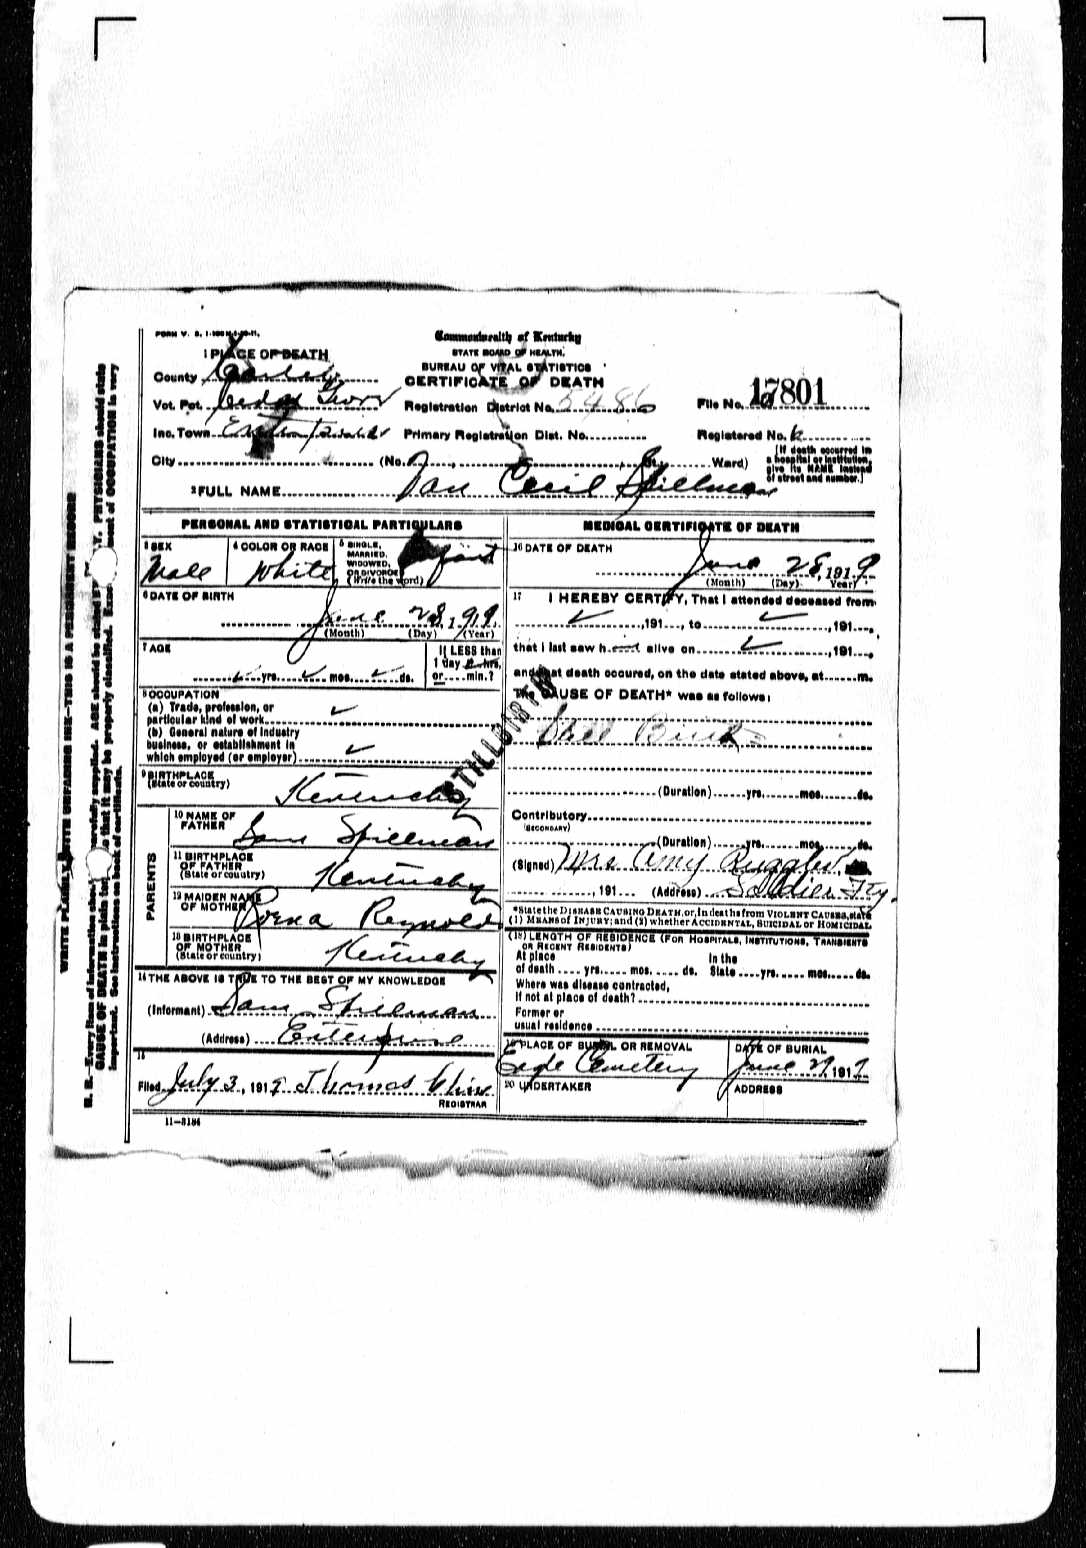 FORM V. S. 1-
Commonwealth of Kentucky
STATE BOARD OF HEALTH.
BUREAU OF VITAL STATISTICS
CERTIFICATE OF DEATH
1 PLACE OF DEATH
County Carter
Vot. Pct.
Inc. Town
City
Registration District No. 5486
Primary Registration Dist. No.
(No. , St. Ward)
File No. 17801
Registered No. 6
(If death occurred in a hospital or institution, give its NAME instead of street and number.)
2 FULL NAME Cecil Spillman
PERSONAL AND STATISTICAL PARTICULARS
3 SEX
Male
4 COLOR OR RACE
White
5 SINGLE, MARRIED, WIDOWED, OR DIVORCED (Write the word)
Infant
6 DATE OF BIRTH
June 28, 1919
(Month) (Day) (Year)
7 AGE
yrs. mos. ds.
If LESS than 1 day hrs. or min.?
8 OCCUPATION
(a) Trade, profession, or
particular kind of work
(b) General nature of industry
business, or establishment in
which employed (or employer)
STILLBIRTH
9 BIRTHPLACE
(State or country)
Kentucky
PARENTS
10 NAME OF FATHER
Sam Spillman
11 BIRTHPLACE OF FATHER
(State or country)
Kentucky
12 MAIDEN NAME OF MOTHER
Reynolds
13 BIRTHPLACE OF MOTHER
(State or country)
Kentucky
14 THE ABOVE IS TRUE TO THE BEST OF MY KNOWLEDGE
(Informant) Sam Spillman
(Address) Enterprise
15
Filed July 3, 1919 Thomas
REGISTRAR
11-3184
MEDICAL CERTIFICATE OF DEATH
16 DATE OF DEATH
June 28, 1919
(Month) (Day) (Year)
17 I HEREBY CERTIFY, That I attended deceased from
,191 , to ,191 ,
that I last saw h alive on ,191 ,
and that death occured, on the date stated above, at m.
The CAUSE OF DEATH* was as follows:
(Duration) yrs. mos. ds.
Contributory
(SECONDARY)
(Duration) yrs. mos. ds.
(Signed) Mrs Amy Ruggles
, 191 (Address) Soldier Ky.
*State the DISEASE CAUSING DEATH, or, in deaths from VIOLENT CAUSES, state
(1) MEANS of INJURY; and (2) whether ACCIDENTAL, SUICIDAL or HOMICIDAL
(18) LENGTH OF RESIDENCE (FOR HOSPITALS, INSTITUTIONS, TRANSIENTS
OR RECENT RESIDENTS)
At place of death yrs. mos. ds. In the State yrs. mos. ds.
Where was disease contracted,
if not at place of death?
Former or
usual residence
19 PLACE OF BURIAL OR REMOVAL
Cemetery
DATE OF BURIAL
June 29, 1919
20 UNDERTAKER
ADDRESS